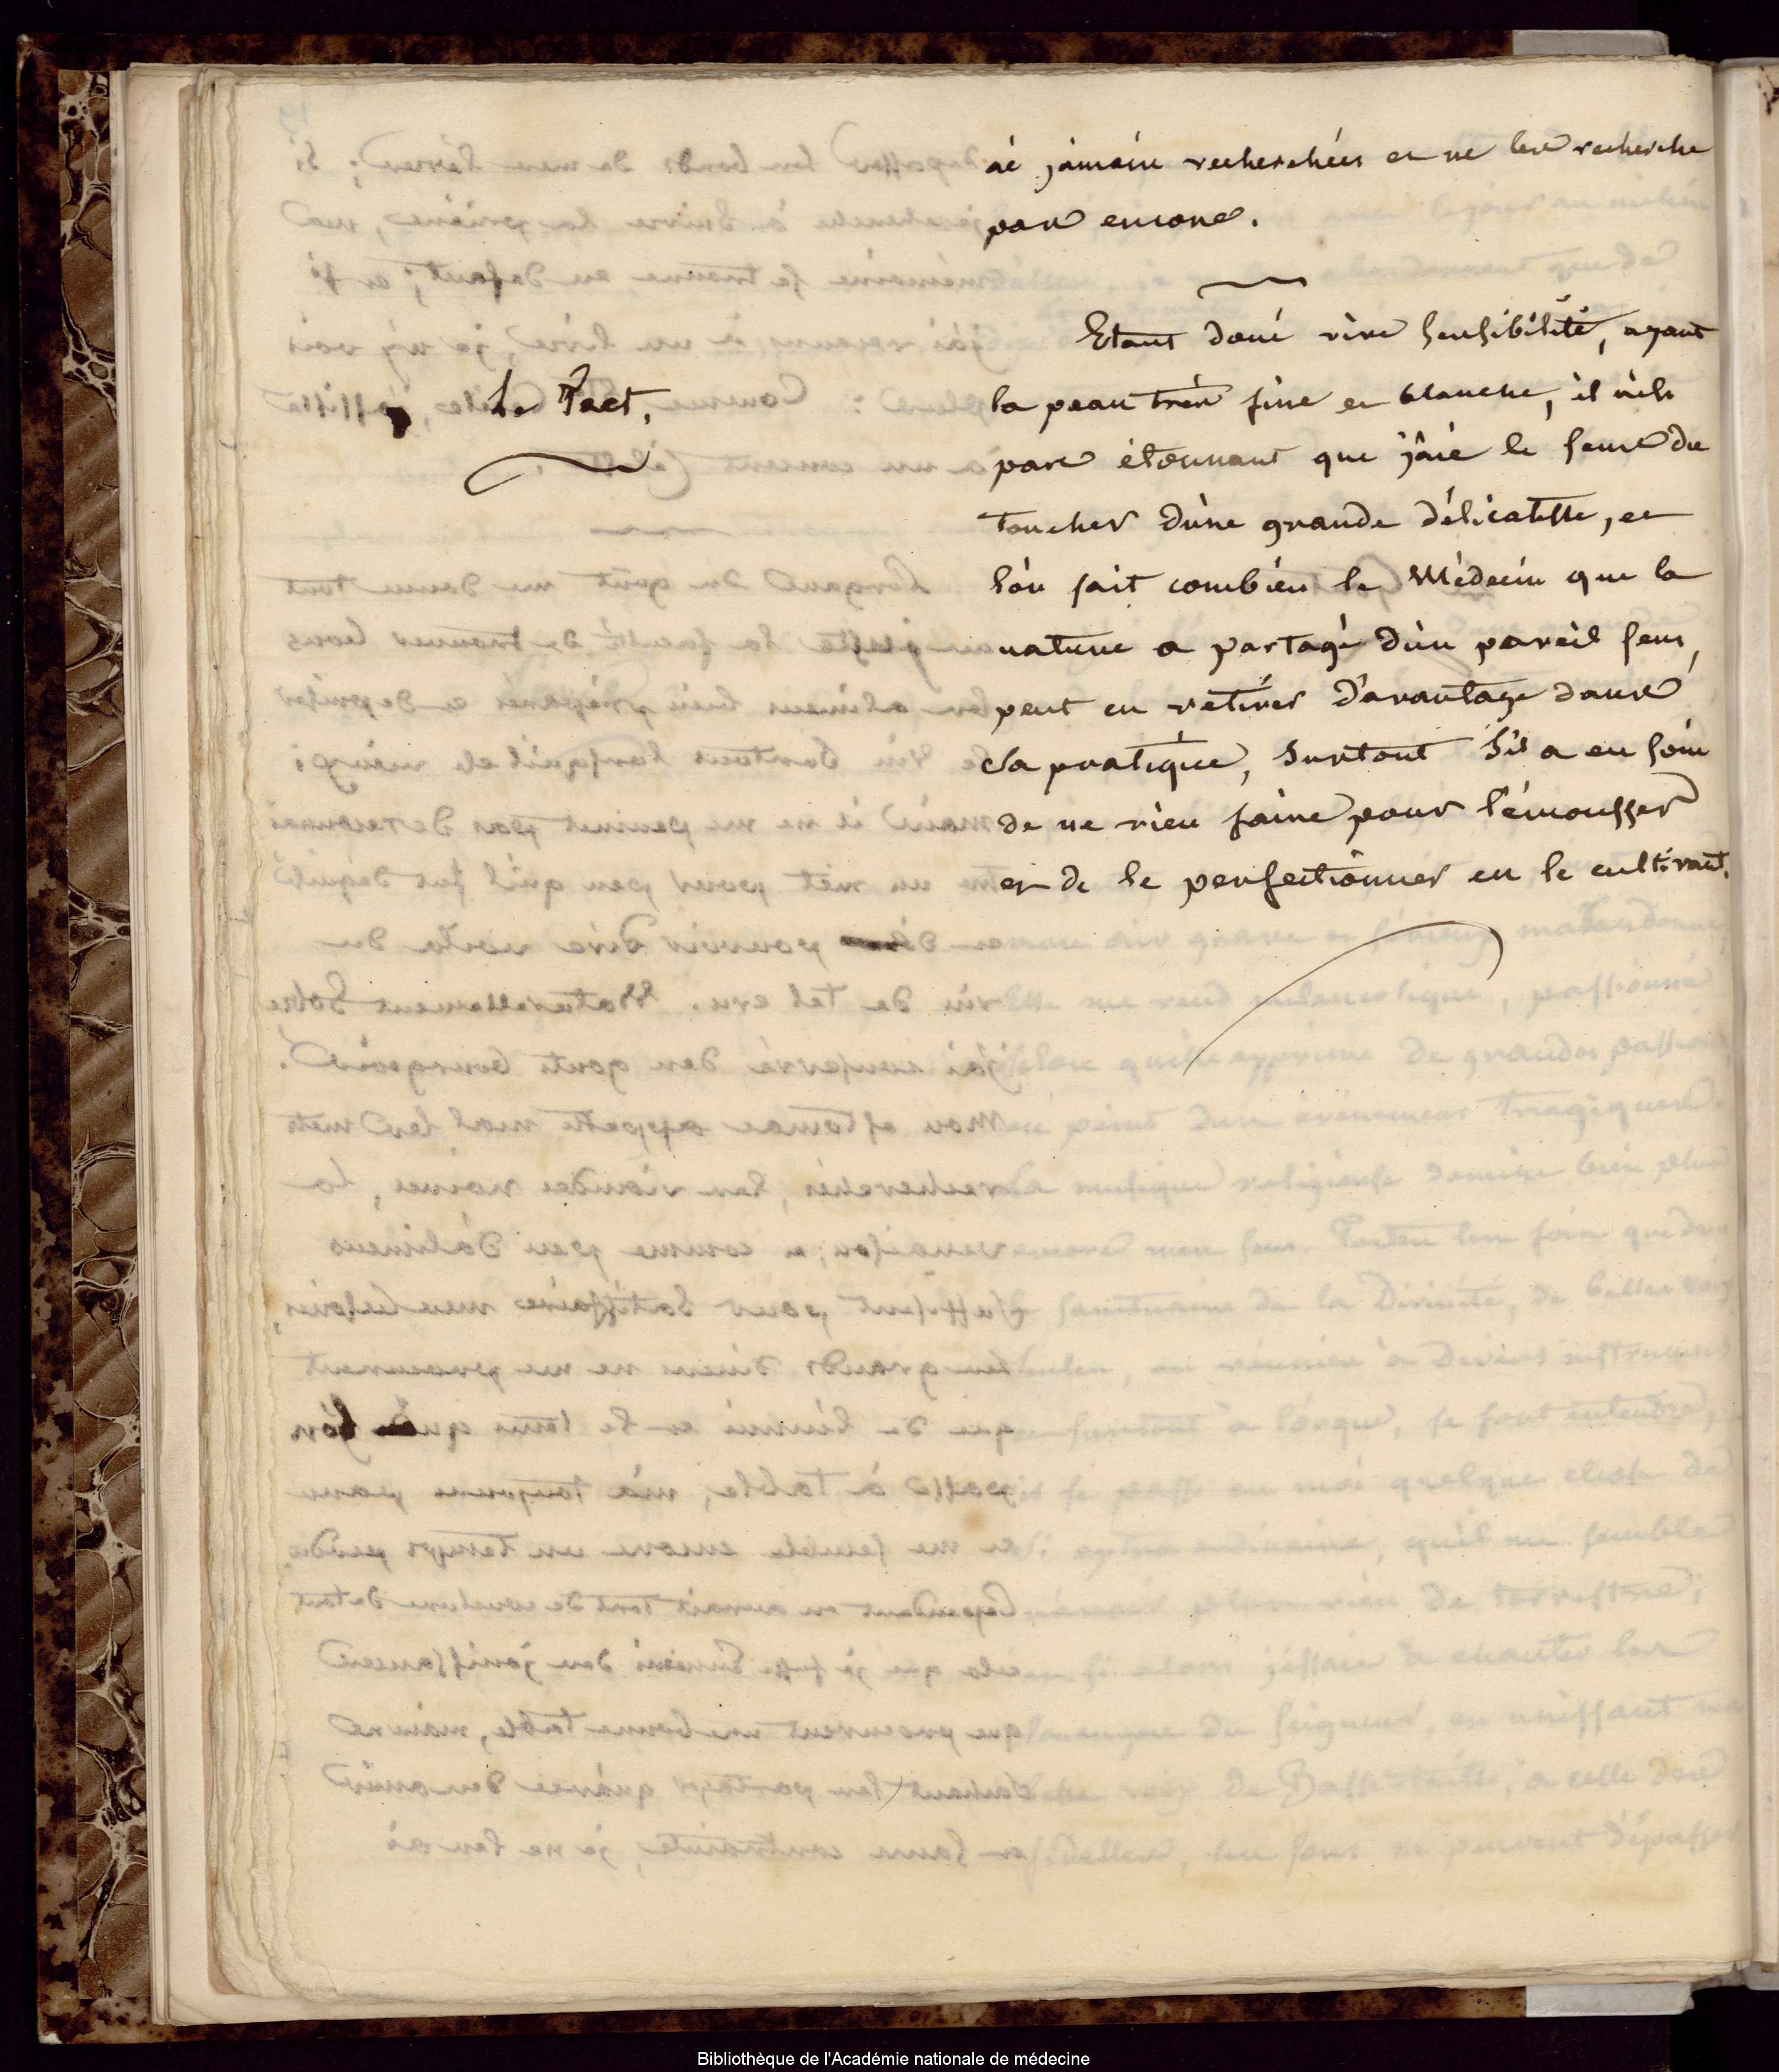 ai jamais recherchées et ne les recherche
pas encore.
Le Tact.
Etant doué vive sensibilité, ayant
la peau très fine et blanche, il n'est
pas étonnant que j'aie le sens du
toucher d'une grande délicatesse, et
l'on sait combien le Médecin que la
nature a partagé d'un pareil sens,
peut en retirer d'avantage dans
sa pratique, surtout s'il a eu soin
de ne rien faire pour l'émousser
et de le perfectionner en le cultivant.
Bibliothèque de l'Académie nationale de médecine